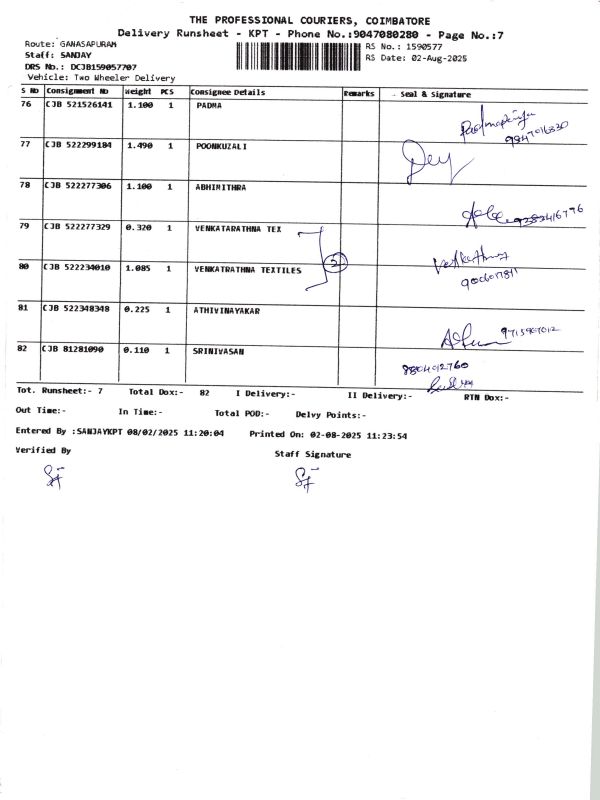 THE PROFESSIONAL COURIERS, COIMBATORE
Delivery Runsheet - KPT - Phone No.:9047080280 - Page No.:7
Route: GANASAPURAM
RS No.: 1590577
Staff: SANJAY
RS Date: 02-Aug-2025
DRS No.: DCJB159057707
Vehicle: Two Wheeler Delivery
S No Consignment No Weight PCS Consignee Details Remarks Seal & Signature
76 CJB 521526141 1.100 1 PADMA
77 CJB 522299184 1.490 1 POONKUZALI
78 CJB 522277306 1.100 1 ABHIMITHRA
79 CJB 522277329 0.320 1 VENKATARATHNA TEX
2
80 CJB 522234010 1.085 1 VENKATRATHNA TEXTILES
81 CJB 522348348 0.225 1 ATHIVINAYAKAR
82 CJB 81281090 0.110 1 SRINIVASAN
Tot. Runsheet:- 7 Total Dox:- 82 I Delivery:- II Delivery:- RTN Dox:-
Out Time:- In Time:- Total POD:- Delvy Points:-
Entered By :SANJAYKPT 08/02/2025 11:20:04 Printed On: 02-08-2025 11:23:54
Verified By Staff Signature